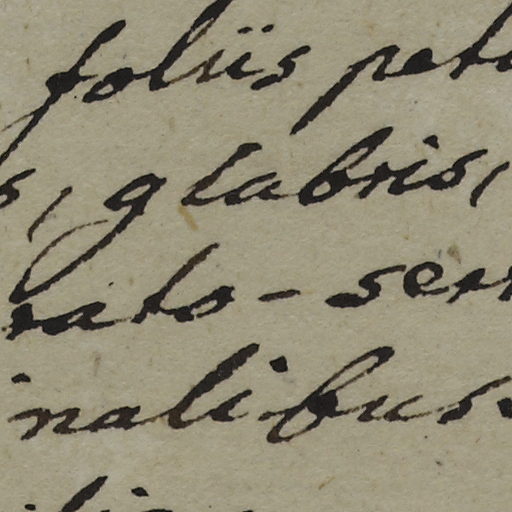 foliis peto
s, glabris,
rato-serr
inalibus.